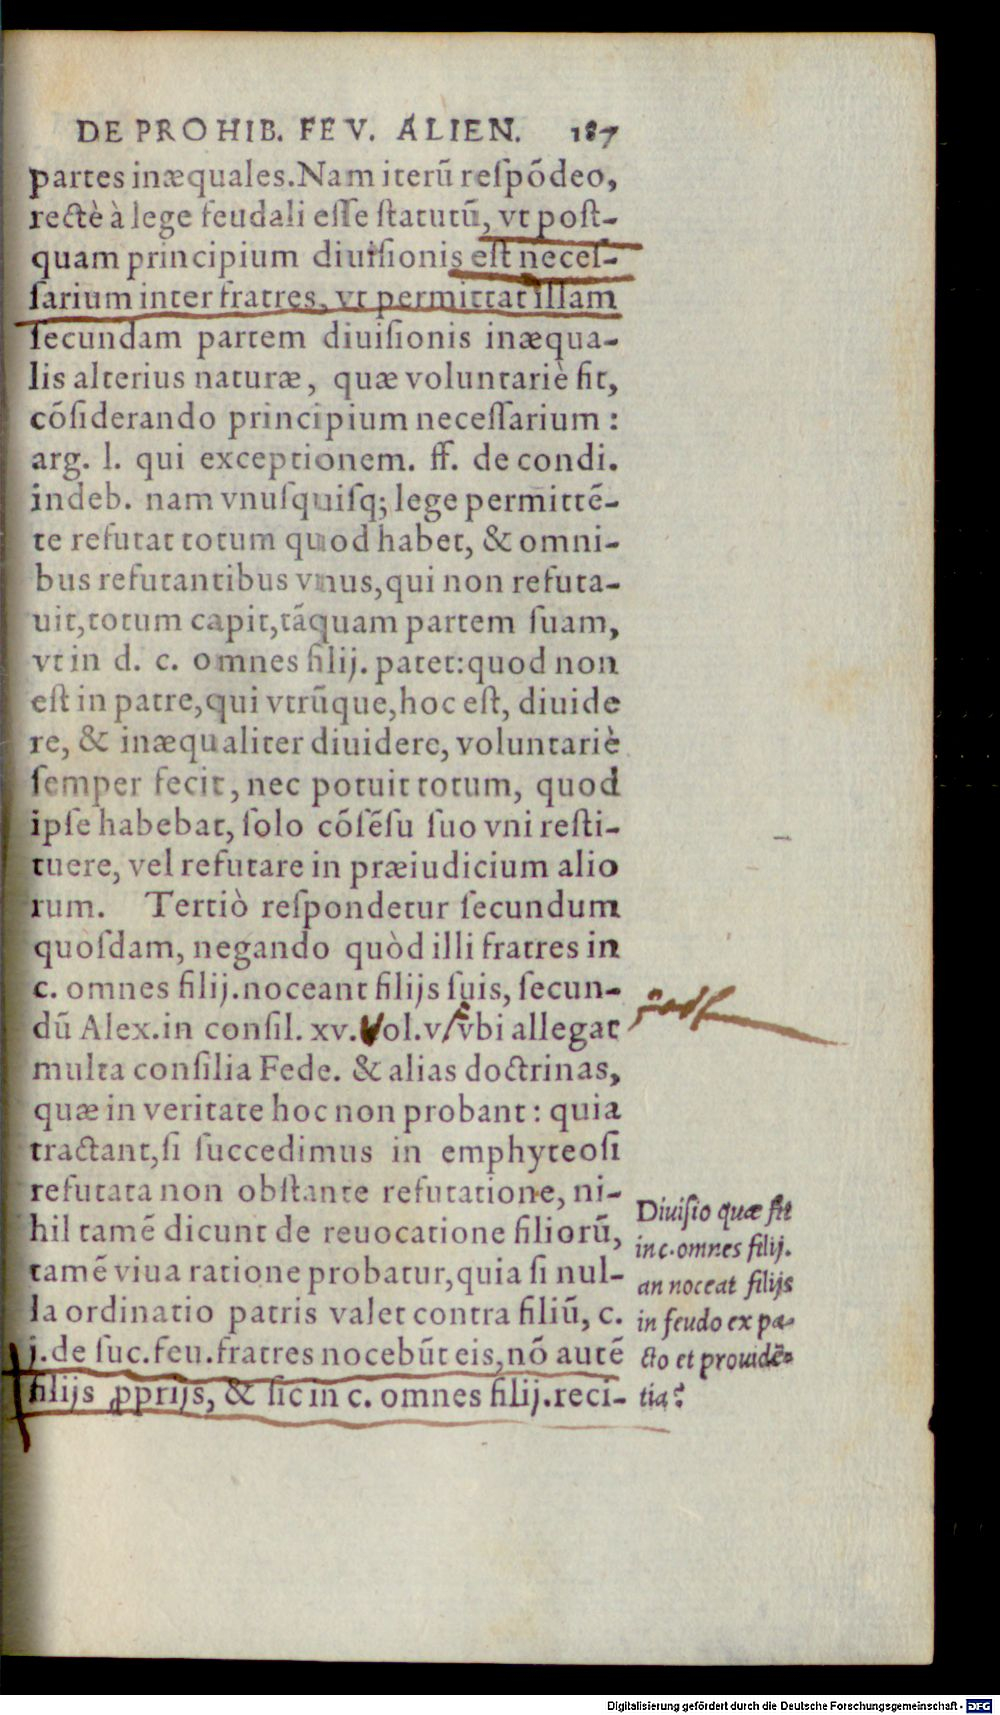 DE PROHIB. FEV. ALIEN. 187
partes inæquales. Nam iterū reſpōdeo,
rectè à lege feudali eſſe ſtatutū, vt poſt-
quam principium diuiſionis eſt neceſ-
ſarium inter fratres, vt permittat illam
ſecundam partem diuiſionis inæqua-
lis alterius naturæ, quæ voluntariè fit,
cōſiderando principium neceſſarium :
arg. l. qui exceptionem. ff. de condi.
indeb. nam vnuſquiſq; lege permittē-
te refutat totum quod habet, & omni-
bus refutantibus vnus, qui non refuta-
uit, totum capit, tāquam partem ſuam,
vt in d. c. omnes filij. patet: quod non
eſt in patre, qui vtrūque, hoc eſt, diuide
re, & inæqualiter diuidere, voluntariè
ſemper fecit, nec potuit totum, quod
ipſe habebat, ſolo cōſēſu ſuo vni reſti-
tuere, vel refutare in præiudicium alio
rum. Tertiò reſpondetur ſecundum
quoſdam, negando quòd illi fratres in
c. omnes filij. noceant filijs ſuis, ſecun-
dū Alex. in conſil. xv. Vol. v. vbi allegat
multa conſilia Fede. & alias doctrinas,
quæ in veritate hoc non probant : quia
tractant, ſi ſuccedimus in emphyteoſi
refutata non obſtante refutatione, ni-
hil tamē dicunt de reuocatione filiorū,
tamē viua ratione probatur, quia ſi nul-
la ordinatio patris valet contra filiū, c.
j. de ſuc. feu. fratres nocebūt eis, nō autē
filijs ꝓprijs, & ſic in c. omnes filij. reci-
Diuiſio quæ fit
in c. omnes filij.
an noceat filijs
in feudo ex pa-
cto et prouidē-
tia?
Digitalisierung gefördert durch die Deutsche Forschungsgemeinschaft - DFG